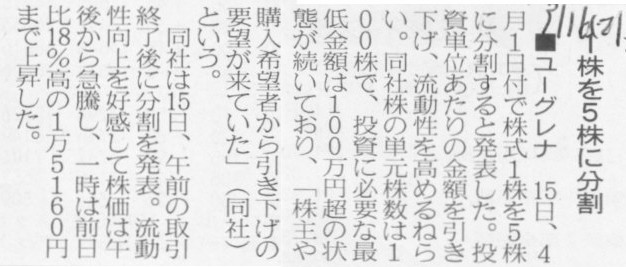 1株を5株に分割
■ユーグレナ　15日、4
月1日付で株式1株を5株
に分割すると発表した。投
資単位あたりの金額を引き
下げ、流動性を高めるねら
い。同社株の単元株数は1
00株で、投資に必要な最
低金額は100万円超の状
態が続いており、「株主や
購入希望者から引き下げの
要望が来ていた」（同社）
という。
　同社は15日、午前の取引
終了後に分割を発表。流動
性向上を好感して株価は午
後から急騰し、一時は前日
比18％高の1万5160円
まで上昇した。